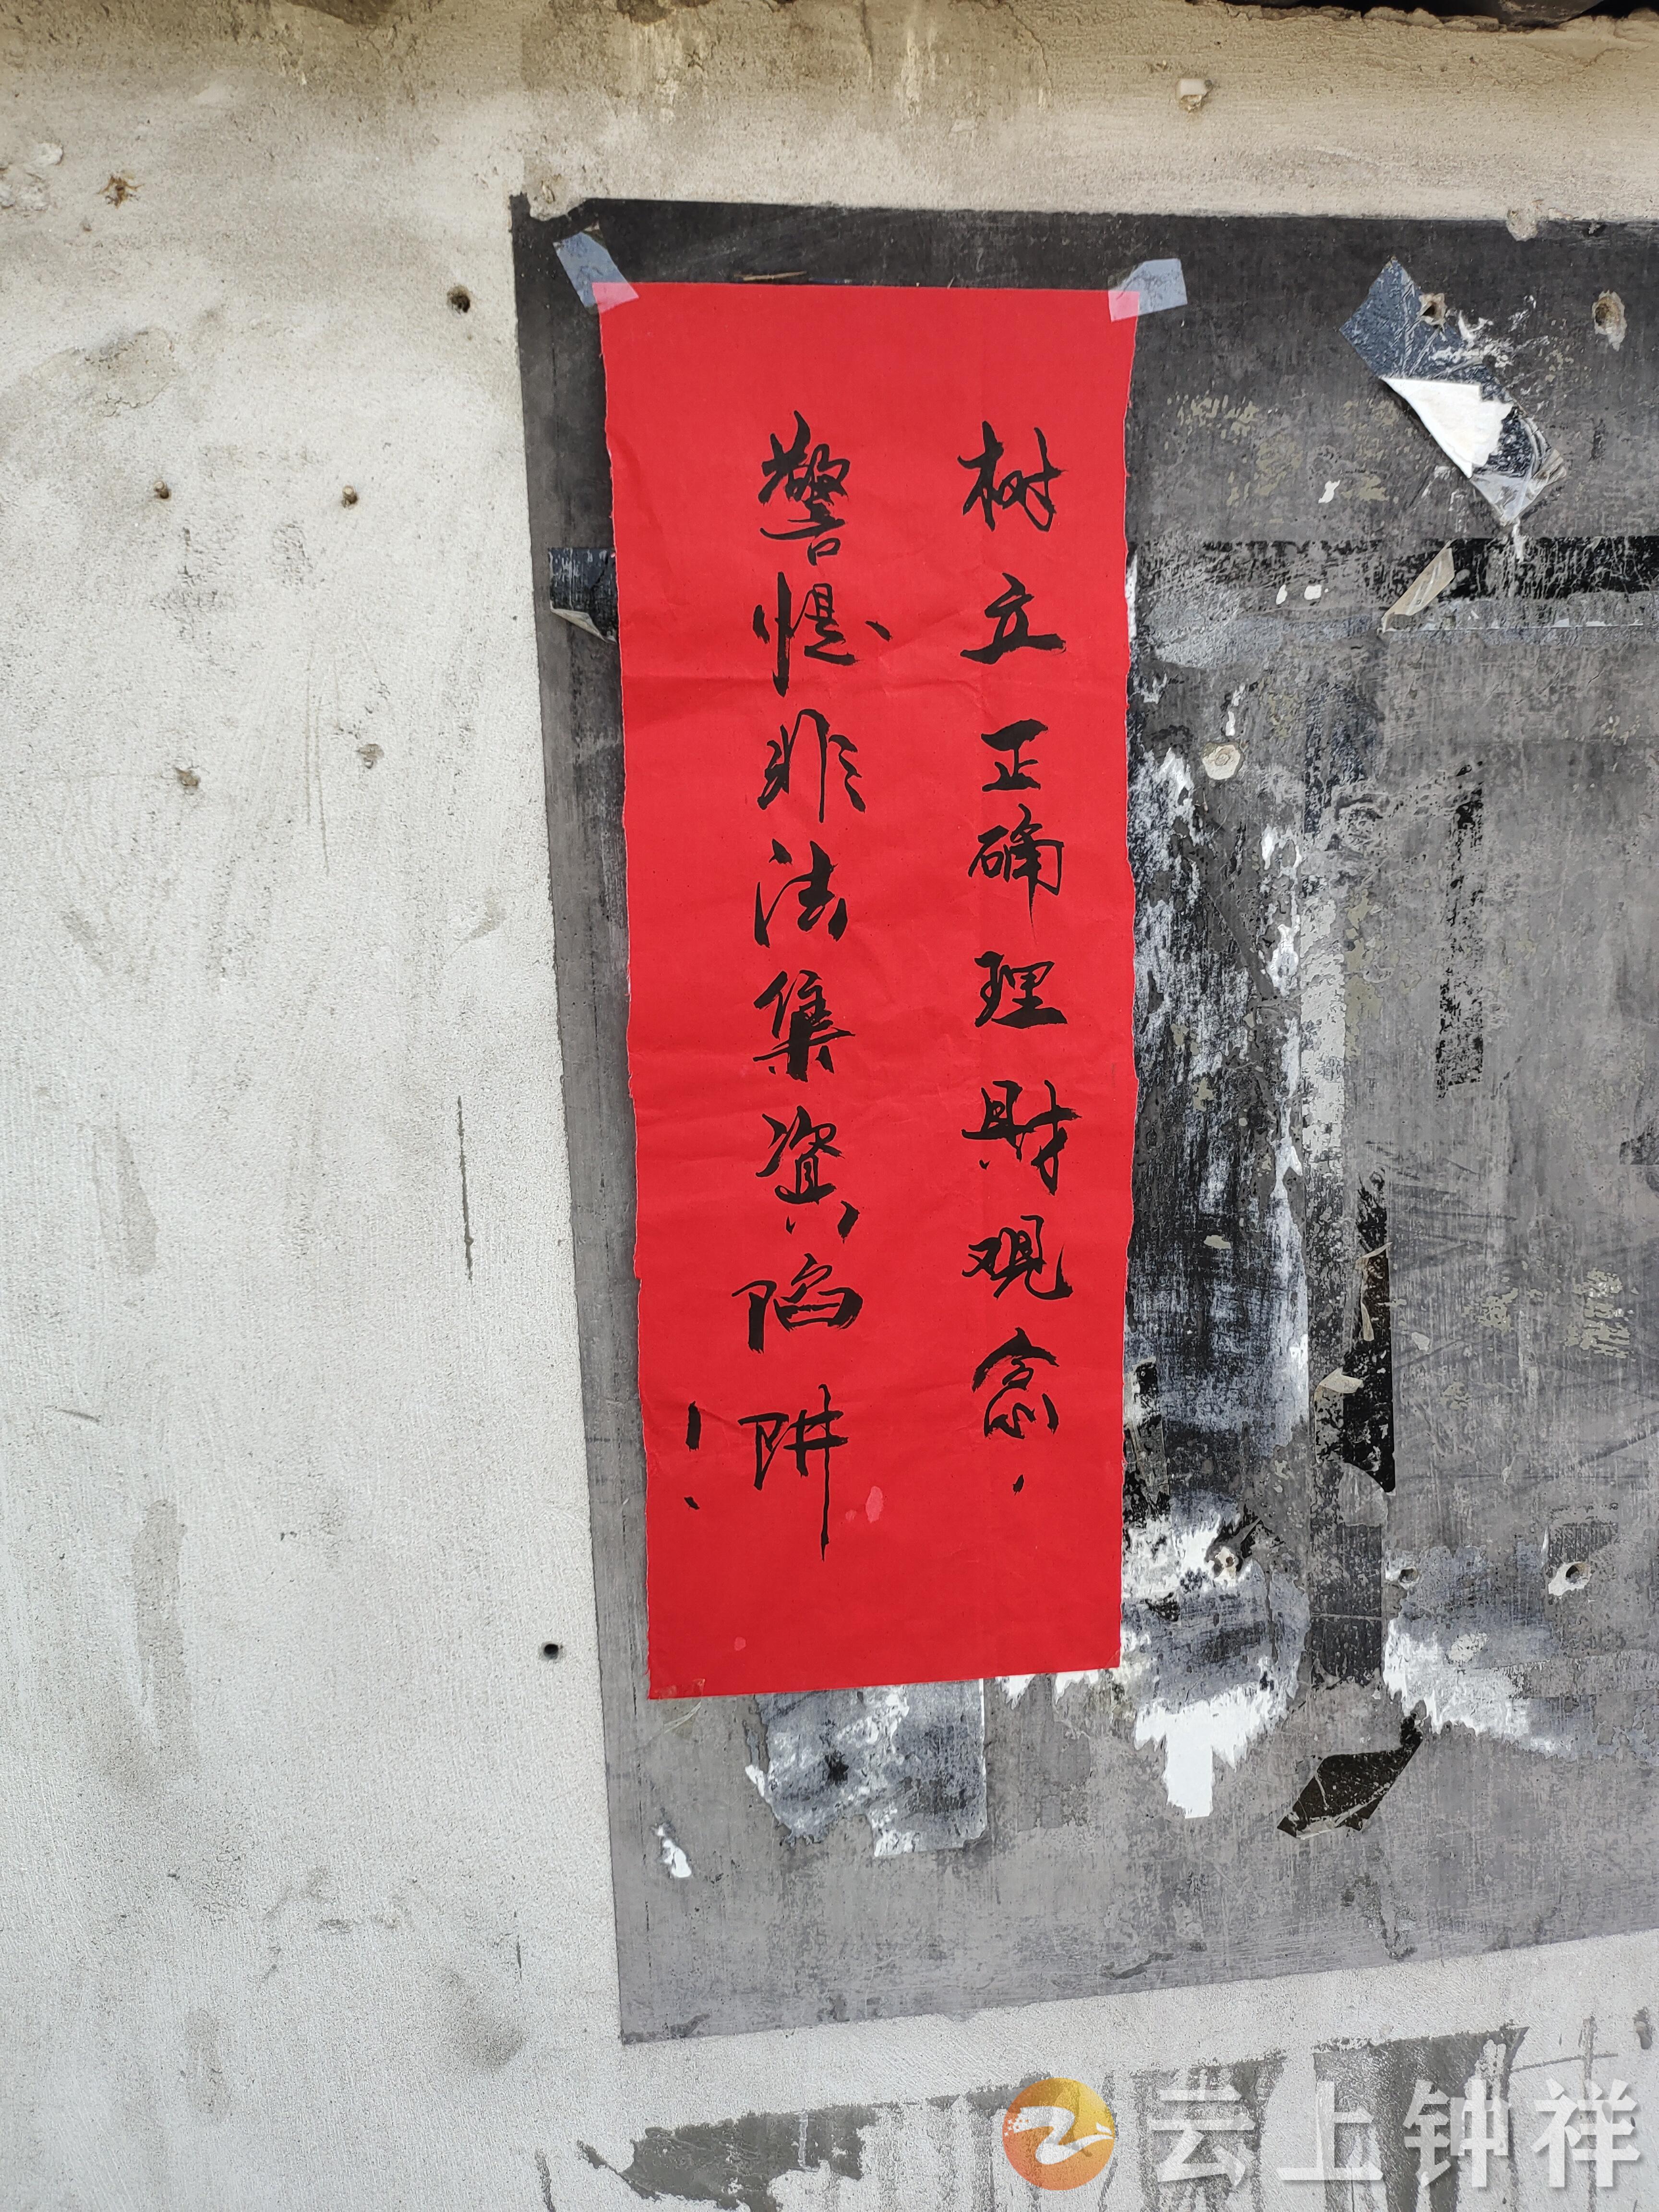 树立正确理财观念.
警惕非法集资陷阱!
云上钟祥